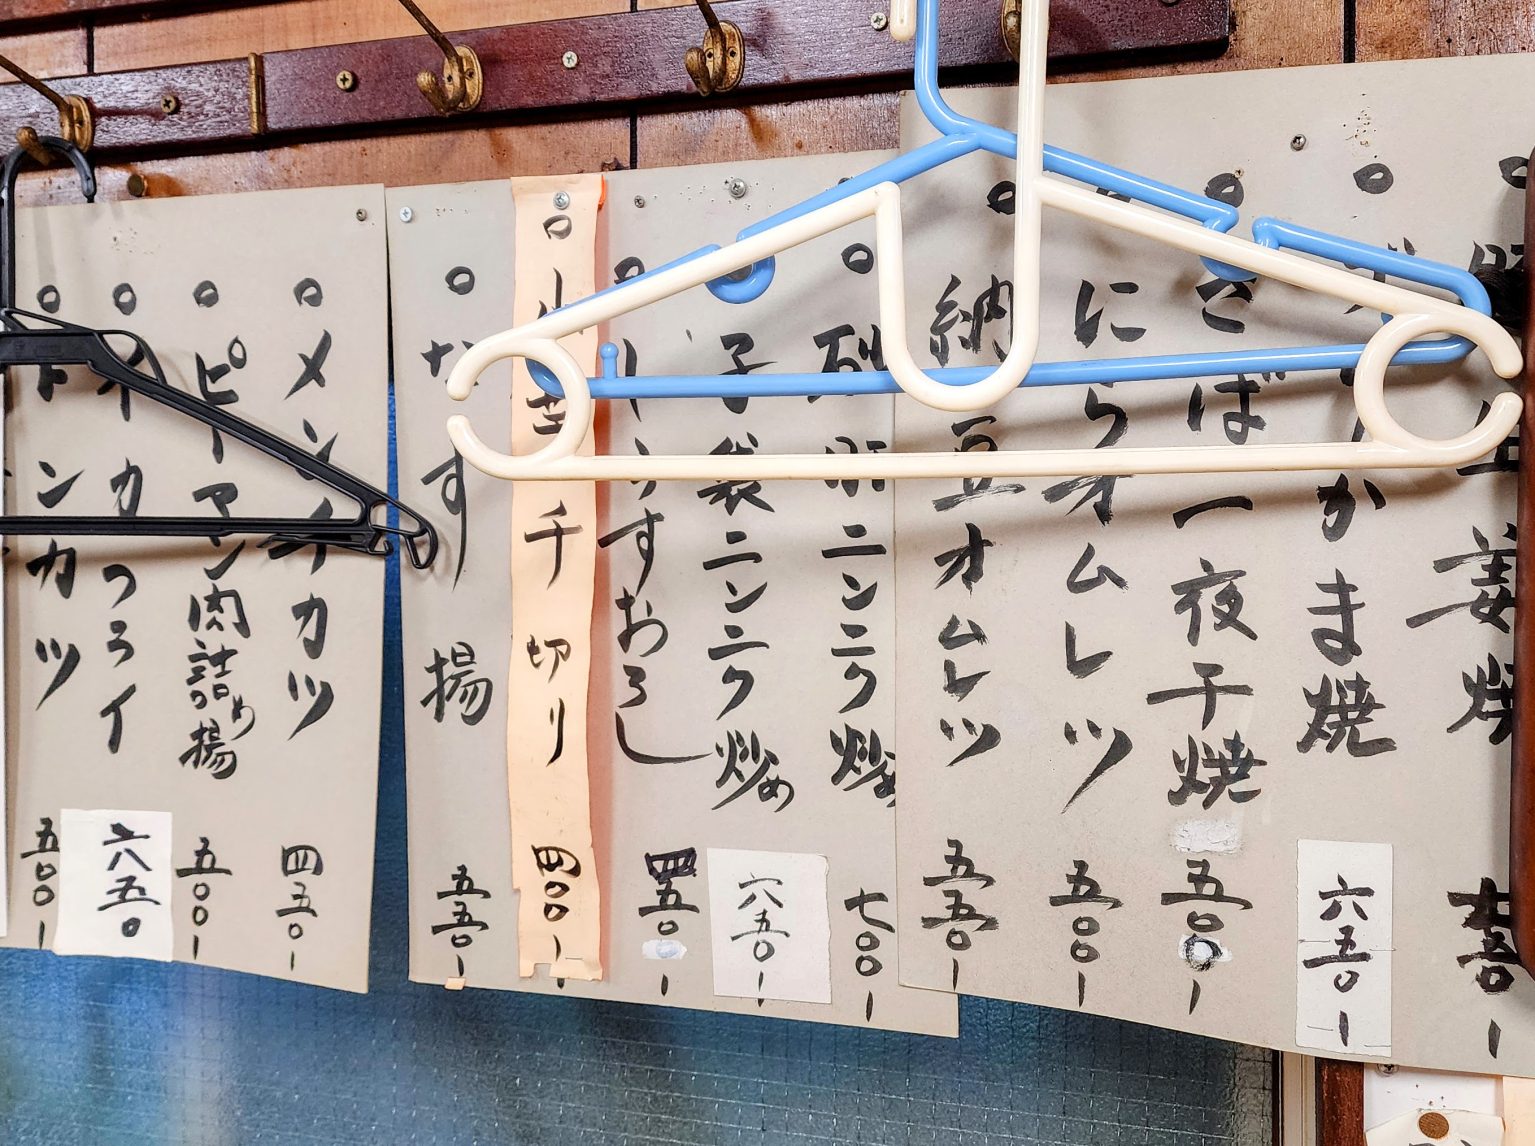 ○生姜焼 五〇ー
○かま焼 六五〇ー
○さば一夜干焼 五〇〇ー
○にらオムレツ 五〇〇ー
○納豆オムレツ 五五〇ー
○砂肝ニンニク炒め 七〇〇ー
○子袋ニンニク炒め 六五〇ー
○しらすおろし 五〇ー
○山芋千切り 四〇〇ー
○なす揚 五五〇ー
○メンチカツ 四五〇ー
○ピーマン肉詰め揚 五〇〇ー
○イカフライ 六五〇
○トンカツ 五〇〇ー